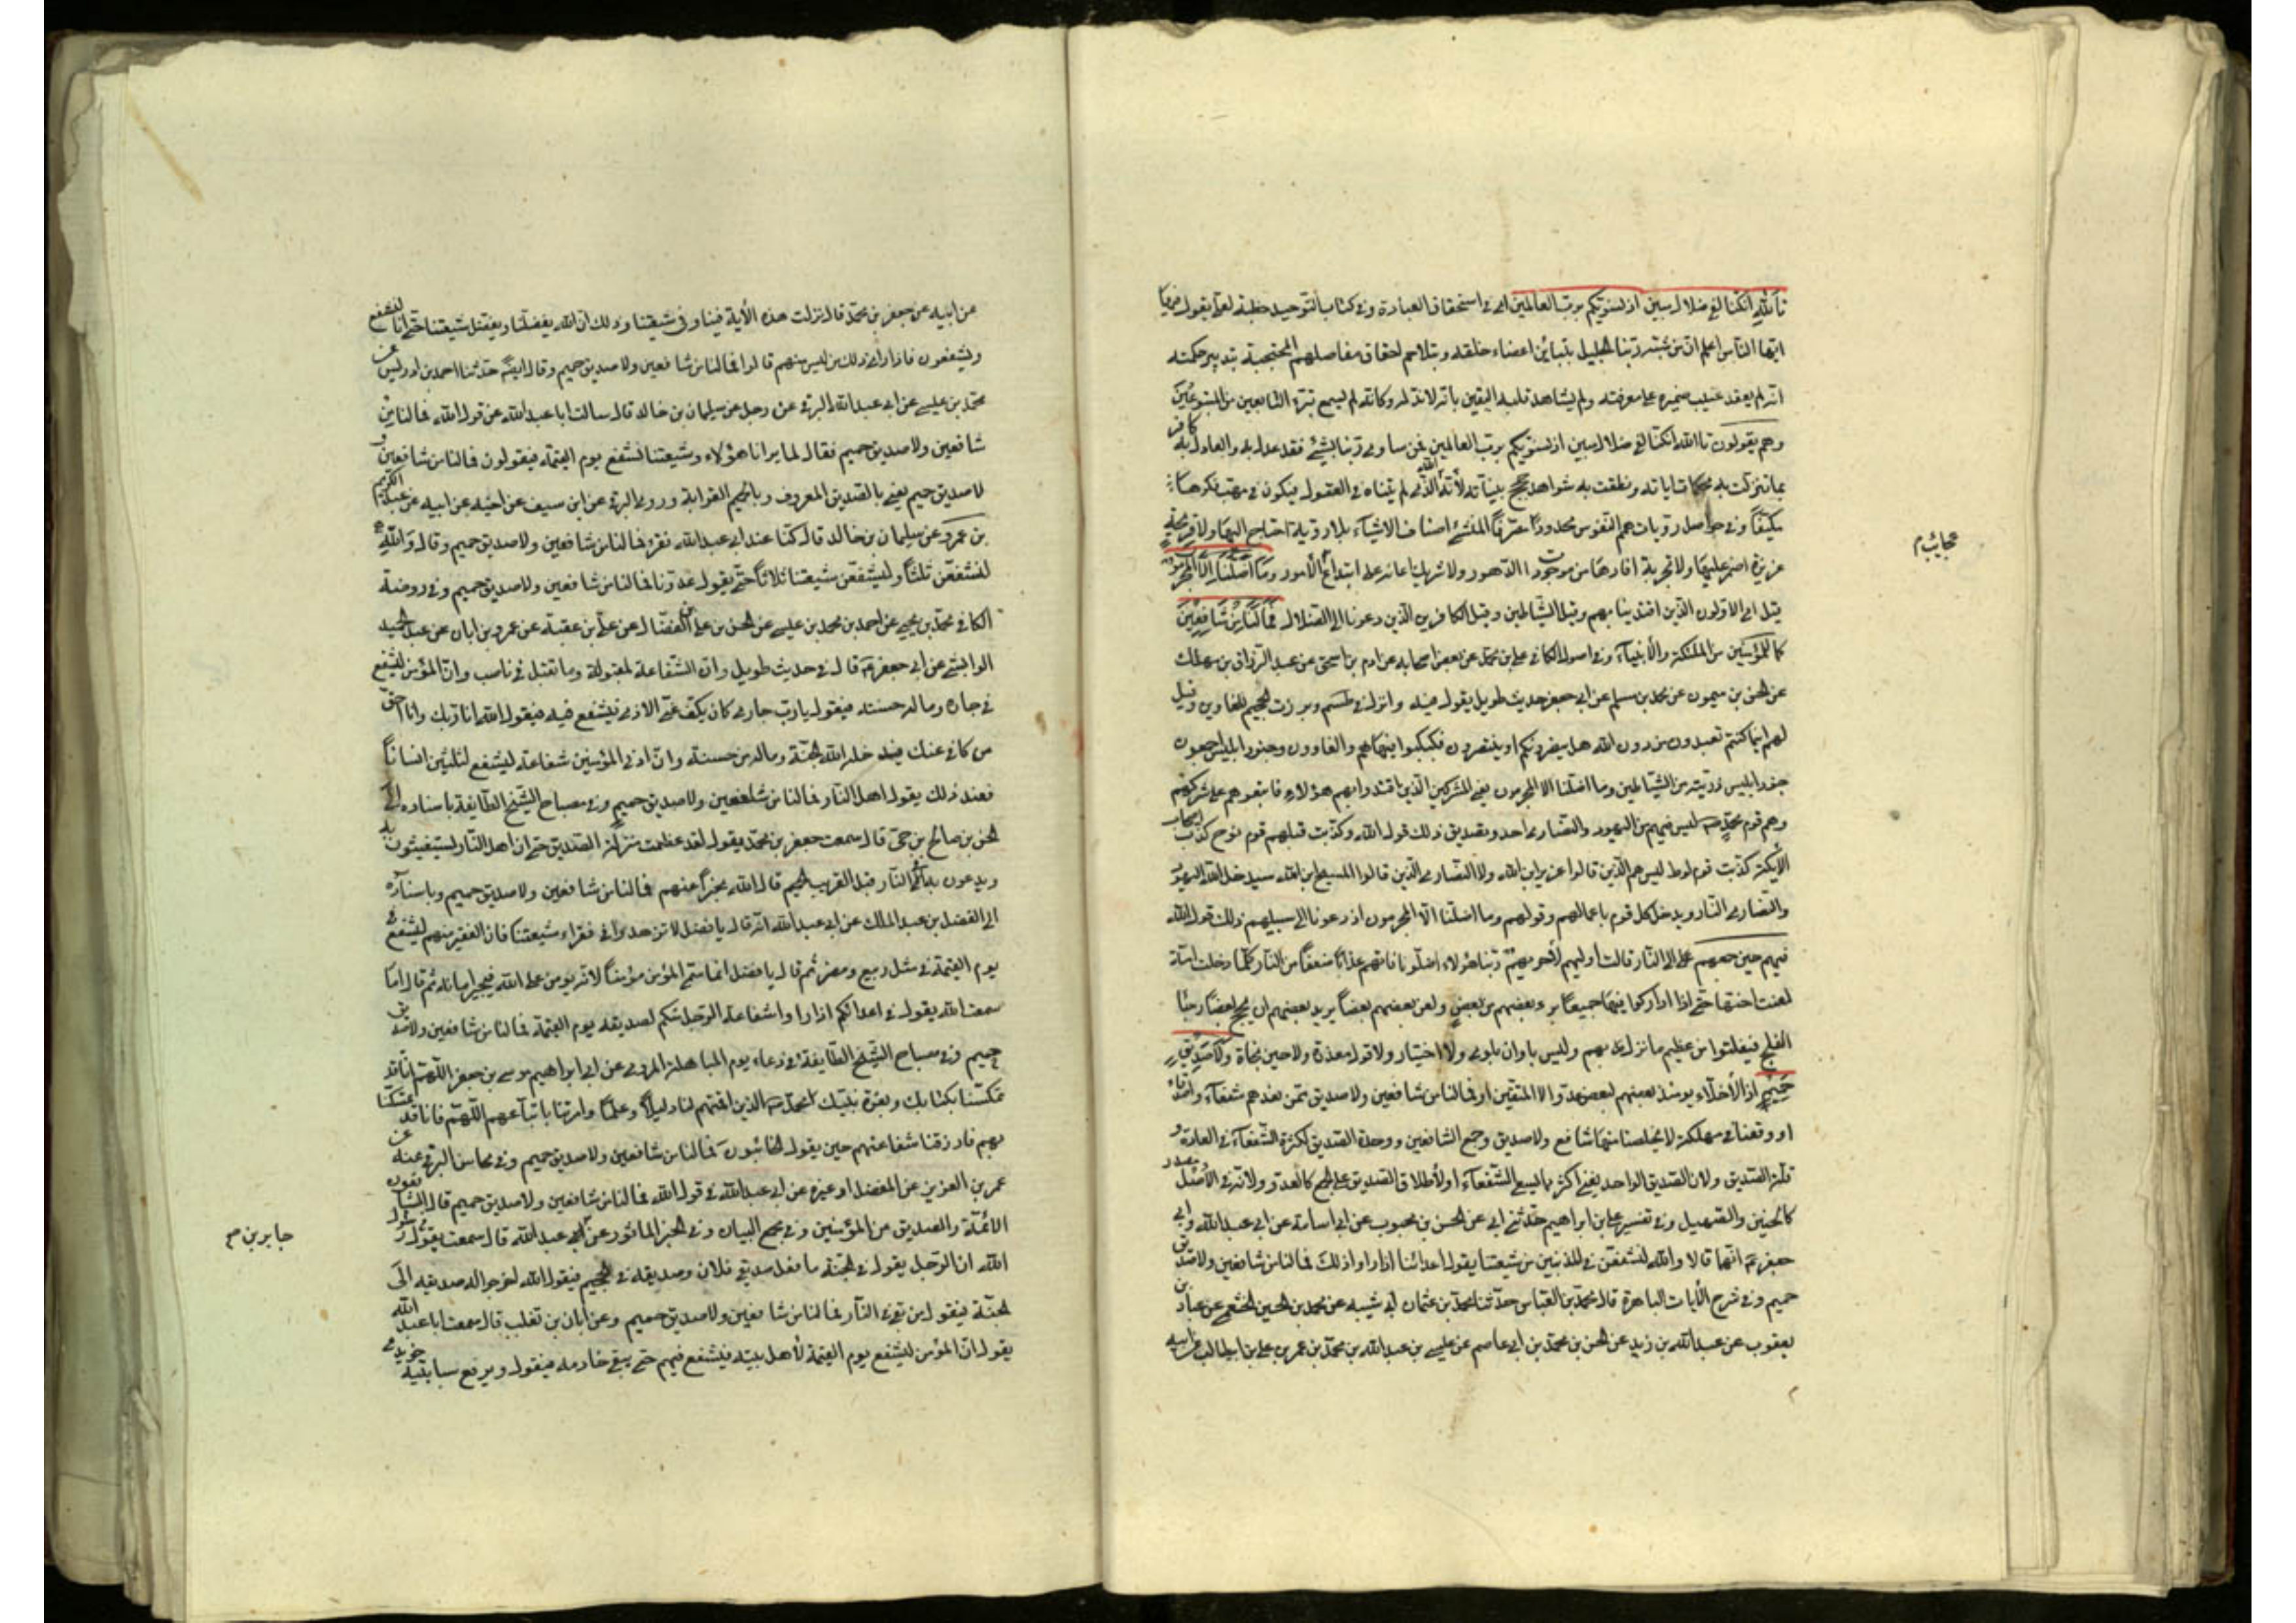 تالله ان كنا لفي ضلال مبين اذ نسويكم برب العالمين اي في استحقاق العبادة وفي كتاب التوحيد خطبة لعلي يقول فيها
ايها الناس اعلم ان من شبه ربنا الجليل بتباين اعضاء خلقه وبتلاحم احقاق مفاصلهم المحتجبة بتدبير حكمته
انه لم يعقد غيب ضميره على معرفته ولم يشاهد قلبه اليقين بانه لا ند له وكانه لم يسمع بتبرء التابعين من المتبوعين
وهم يقولون تالله ان كنا لفي ضلال مبين اذ نسويكم برب العالمين فمن ساوى ربنا بشيء فقد عدل به والعادل به كافر
بما تنزلت به محكمات اياته ونطقت به شواهد حجج بيناته لانه الله الذي لم يتناه في العقول فيكون في مهب فكرها
مكيفا وفي حواصل رويات همم النفوس محدودا مصرفا المنشئ اصناف الاشياء بلا روية احتاج اليها ولا قريحة
غريزة اضمر عليها ولا تجربة افادها من موجودات الدهور ولا شريك اعانه على ابتداع الامور وما اضلنا الا المجرمون
قيل اي الاولون الذين اقتدينا بهم وقيل الشياطين وقيل الكافرين الذين دعونا الى الضلال فما لنا من شافعين
كما للمؤمنين من الملئكة والانبياء وفي اصول الكافي علي بن محمد عن بعض اصحابه عن ادم بن اسحق عن عبد الرزاق بن مهران
عن الحسين بن ميمون عن محمد بن سالم عن ابي جعفر حديث طويل يقول فيه وانزل في طسم وبرزت الجحيم للغاوين وقيل
لهم اينما كنتم تعبدون من دون الله هل ينصرونكم او ينتصرون فكبكبوا فيها هم والغاوون وجنود ابليس اجمعون
جنود ابليس ذريته من الشياطين وما اضلنا الا المجرمون يعني المشركين الذين اقتدوا بهم هؤلاء فاتبعوهم على شركهم
وهم قوم محمد ص ليس فيهم من اليهود والنصارى احد وتصديق ذلك قول الله وكذبت قبلهم قوم نوح كذب اصحاب
الأيكة كذبت قوم لوط ليس هم الذين قالوا عزير ابن الله ولا النصارى الذين قالوا المسيح ابن الله سيدخل الله اليهود
والنصارى النار ويدخل كل قوم باعمالهم وقولهم وما اضلنا الا المجرمون اذ دعونا الى سبيلهم ذلك قول الله
فيهم حين جمعهم الى النار قالت اوليهم لاخريهم ربنا هؤلاء اضلونا فاتهم عذابا ضعفا من النار كلما دخلت امة
لعنت اختها حتى اذا اداركوا فيها جميعا برء بعضهم من بعض ولعن بعضهم بعضا يريد بعضهم ان يحج بعضا رجاء
الفلج فيفلتوا من عظيم ما نزل بهم وليس باوان بلوى ولا اختبار ولا قبول معذرة ولا حين نجاة ولا صديق
حميم اذ الأخلاء يومئذ بعضهم لبعض عدو الا المتقين او فما لنا من شافعين ولا صديق ممن نعدهم شفعاء واصدقاء
او وقعنا في مهلكة لا يخلصنا منها شافع ولا صديق وجمع الشافعين ووحدة الصديق لكثرة الشفعاء في العادة و
قلة الصديق ولان الصديق الواحد يغني اكثر مما يسع الشفعاء او لاطلاق الصديق على الجمع كالعدو ولانه في الاصل مصدر
كالحنين والصهيل وفي تفسير علي بن ابراهيم حدثني ابي عن الحسن بن محبوب عن ابي اسامة عن ابي عبد الله وابي
جعفر ع انهما قالا والله لنشفعن في المذنبين من شيعتنا يقول اعدائنا اذا راوا ذلك فما لنا من شافعين ولا صديق
حميم وفي شرح الأيات الباهرة قال محمد بن العباس حدثنا محمد بن عثمان ابي شيبه عن محمد بن الحسين الخثعمي عن عباد بن
يعقوب عن عبد الله بن زيد عن الحسن بن محمد بن ابي عاصم عن عيسى بن عبد الله بن محمد بن عمر بن علي بن ابيطالب عن ابيه
عجايب م
عن ابيه عن جعفر بن محمد قال نزلت هذه الأية فينا وفي شيعتنا وذلك ان الله يفضلنا ويفضل شيعتنا حتى انا لنشفع
ويشفعون فاذا راى ذلك من ليس منهم قالوا فما لنا من شافعين ولا صديق حميم وقال ايضا حدثنا احمد بن ادريس عن
محمد بن عيسى عن ابي عبد الله البرقي عن رجل عن سليمان بن خالد قال سالت ابا عبد الله عن قول الله فما لنا من
شافعين ولا صديق حميم فقال لما يرانا هؤلاء وشيعتنا نشفع يوم القيمة فيقولون فما لنا من شافعين و
لا صديق حميم يعني بالصديق المعروف وبالحميم القرابة وروى البرقي عن ابن سيف عن اخيه عن ابيه عن عبد الكريم
بن عمرو عن سليمان بن خالد قال كنا عند ابي عبد الله فقرء فما لنا من شافعين ولا صديق حميم وقال والله
لنشفعن ثلثا وليشفعن شيعتنا ثلاثا حتى يقول عدونا فما لنا من شافعين ولا صديق حميم وفي روضة
الكافي محمد بن يحيى عن احمد بن محمد بن عيسى عن الحسن بن علي بن الفضال عن علي بن عقبة عن عمرو بن ابان عن عبد الحميد
الوابشي عن ابي جعفر ع قال في حديث طويل وان الشفاعة لمقبولة وما تقبل في ناصب وان المؤمن ليشفع
في جاره وما له حسنة فيقول يا رب جاري كان يكف عني الاذى فيشفع فيه فيقول الله انا ربك وانا احق
من كافى عنك فيدخله الله الجنة وماله من حسنة وان ادنى المؤمنين شفاعة ليشفع لثلثين انسانا
فعند ذلك يقول اهل النار فما لنا من شافعين ولا صديق حميم وفي مصباح الشيخ الطايفة باسناده الى
الحسن بن صالح بن حي قال سمعت جعفر بن محمد يقول لقد عظمت منزلة الصديق حتى ان اهل النار ليستغيثون به
ويدعون به في النار قبل القريب الحميم قال الله مخبرا عنهم فما لنا من شافعين ولا صديق حميم وباسناده
الى الفضل بن عبد الملك عن ابي عبد الله انه قال يا فضل لا تزهدوا في فقراء شيعتنا فان الفقير منهم ليشفع
يوم القيمة في مثل ربيع ومضر ثم قال يا فضل انما سمي المؤمن مؤمنا لانه يؤمن على الله فيجيز امانه ثم قال اما
سمعت الله يقول في اعدائكم اذا راوا شفاعة الرجل منكم لصديقه يوم القيمة فما لنا من شافعين ولا صديق
حميم وفي مصباح الشيخ الطايفة في دعاء يوم المباهلة المروي عن ابي ابراهيم موسى بن جعفر اللهم انا قد
تمسكنا بكتابك وبعترة نبيك محمد ص الذين اقمتهم لنا دليلا وعلما وامرتنا باتباعهم اللهم فانا قد تمسكنا
بهم فارزقنا شفاعتهم حين يقول الخائبون فما لنا من شافعين ولا صديق حميم وفي محاسن البرقي عنه عن
عمر بن العزيز عن المفضل او غيره عن ابي عبد الله في قول الله فما لنا من شافعين ولا صديق حميم قال الشافعون
الائمة والصديق من المؤمنين وفي مجمع البيان وفي الخبر الماثور عن ابي عبد الله قال سمعت رسول
الله ان الرجل يقول في الجنة ما فعل صديقي فلان وصديقه في الجحيم فيقول الله اخرجوا له صديقه الى
الجنة فيقول من بقي في النار فما لنا من شافعين ولا صديق حميم وعن ابان بن تغلب قال سمعت ابا عبد الله
يقول ان المؤمن ليشفع يوم القيمة لأهل بيته فيشفع فيهم حتى يبقى خادمه فيقول ويرفع سبابتيه
جابر بن م